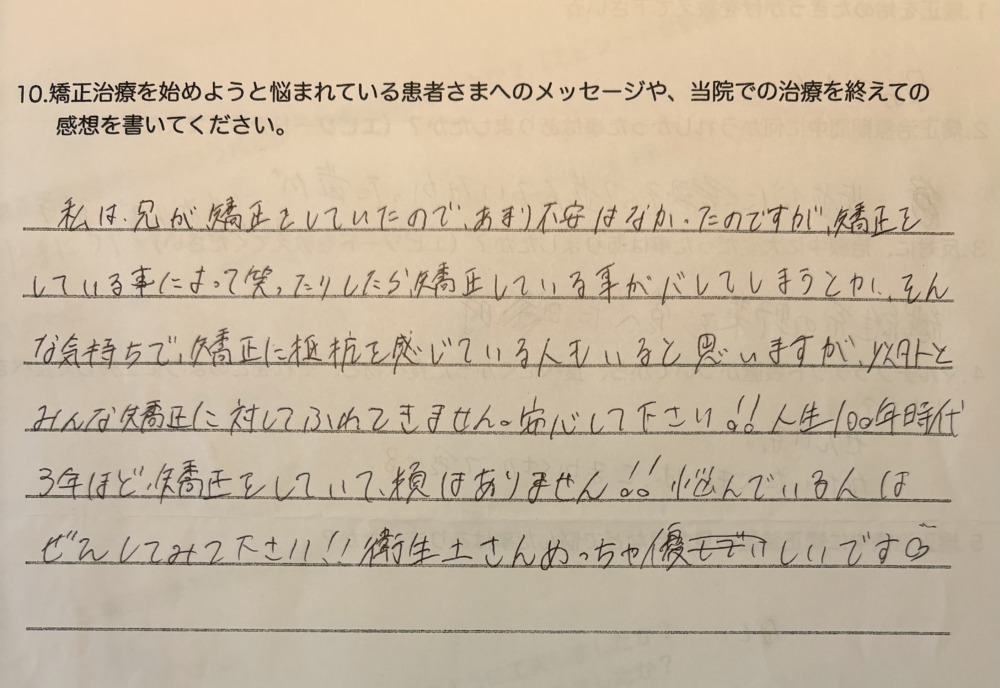 10.矯正治療を始めようと悩まれている患者さまへのメッセージや、当院での治療を終えての
感想を書いてください。
私は、兄が矯正をしていたので、あまり不安はなかったのですが、矯正を
している事によって笑ったりしたら矯正している事がバレてしまうとか、そん
な気持ちで、矯正に抵抗を感じている人もいると思いますが、以外と
みんな矯正に対してふれてきません。安心して下さい!! 人生100年時代
3年ほど、矯正をしていて、損はありません!! 悩んでいる人は
ぜひしてみて下さい!! 衛生士さんめっちゃ優しいです